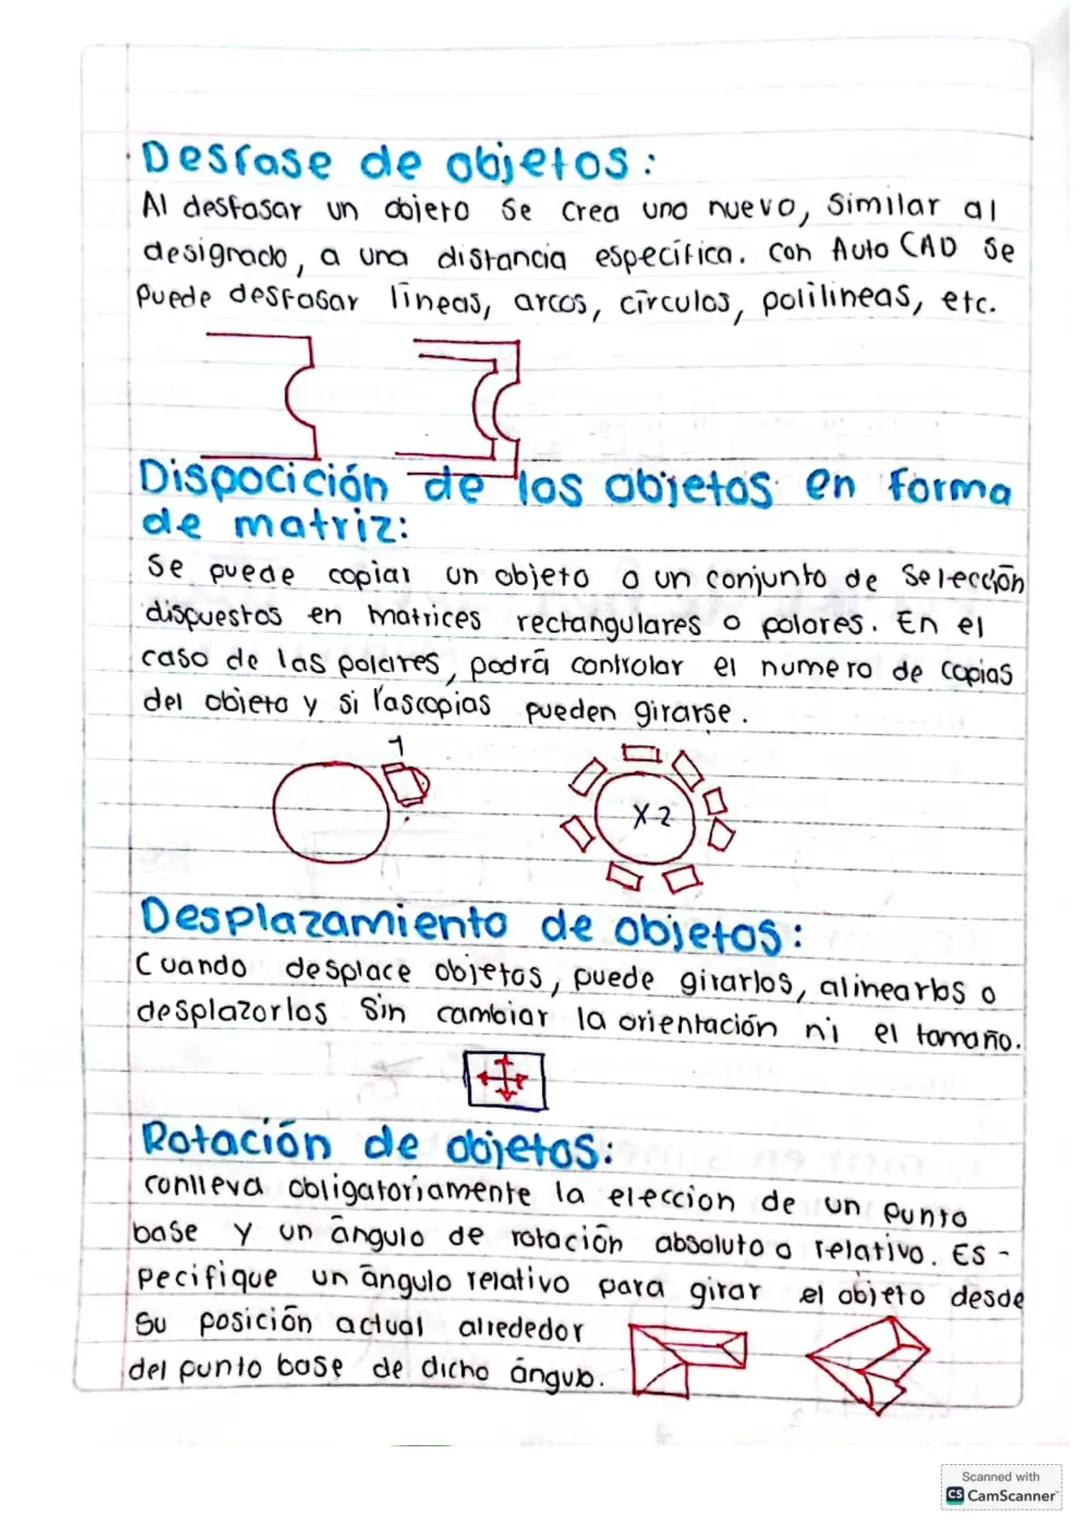 Desfase de objetos:
Al desfasar un objeto se crea uno nuevo, similar al
designado, a una distancia específica. con AutoCAD se
puede desfasar líneas, arcos, círculos, polilineas, etc.
Dispocición de los objetos en forma
de matriz:
Se puede copiar un objeto o un conjunto de Selección
dispuestos en matrices rectangulares o polares. En el
caso de las polares, podrá controlar el numero de copias
del objeto y si las copias pueden girarse.
1
X-2
Desplazamiento de objetos:
Cuando desplace objetos, puede girarlos, alinearlos o
desplazarlos sin cambiar la orientación ni el tamaño.
Rotación de objetos:
conlleva obligatoriamente la eleccion de un punto
base y un ángulo de rotación absoluto o relativo. Es-
pecifique un ángulo relativo para girar el objeto desde
su posición actual alrededor
del punto base de dicho ángulo.
Scanned with
CS CamScanner